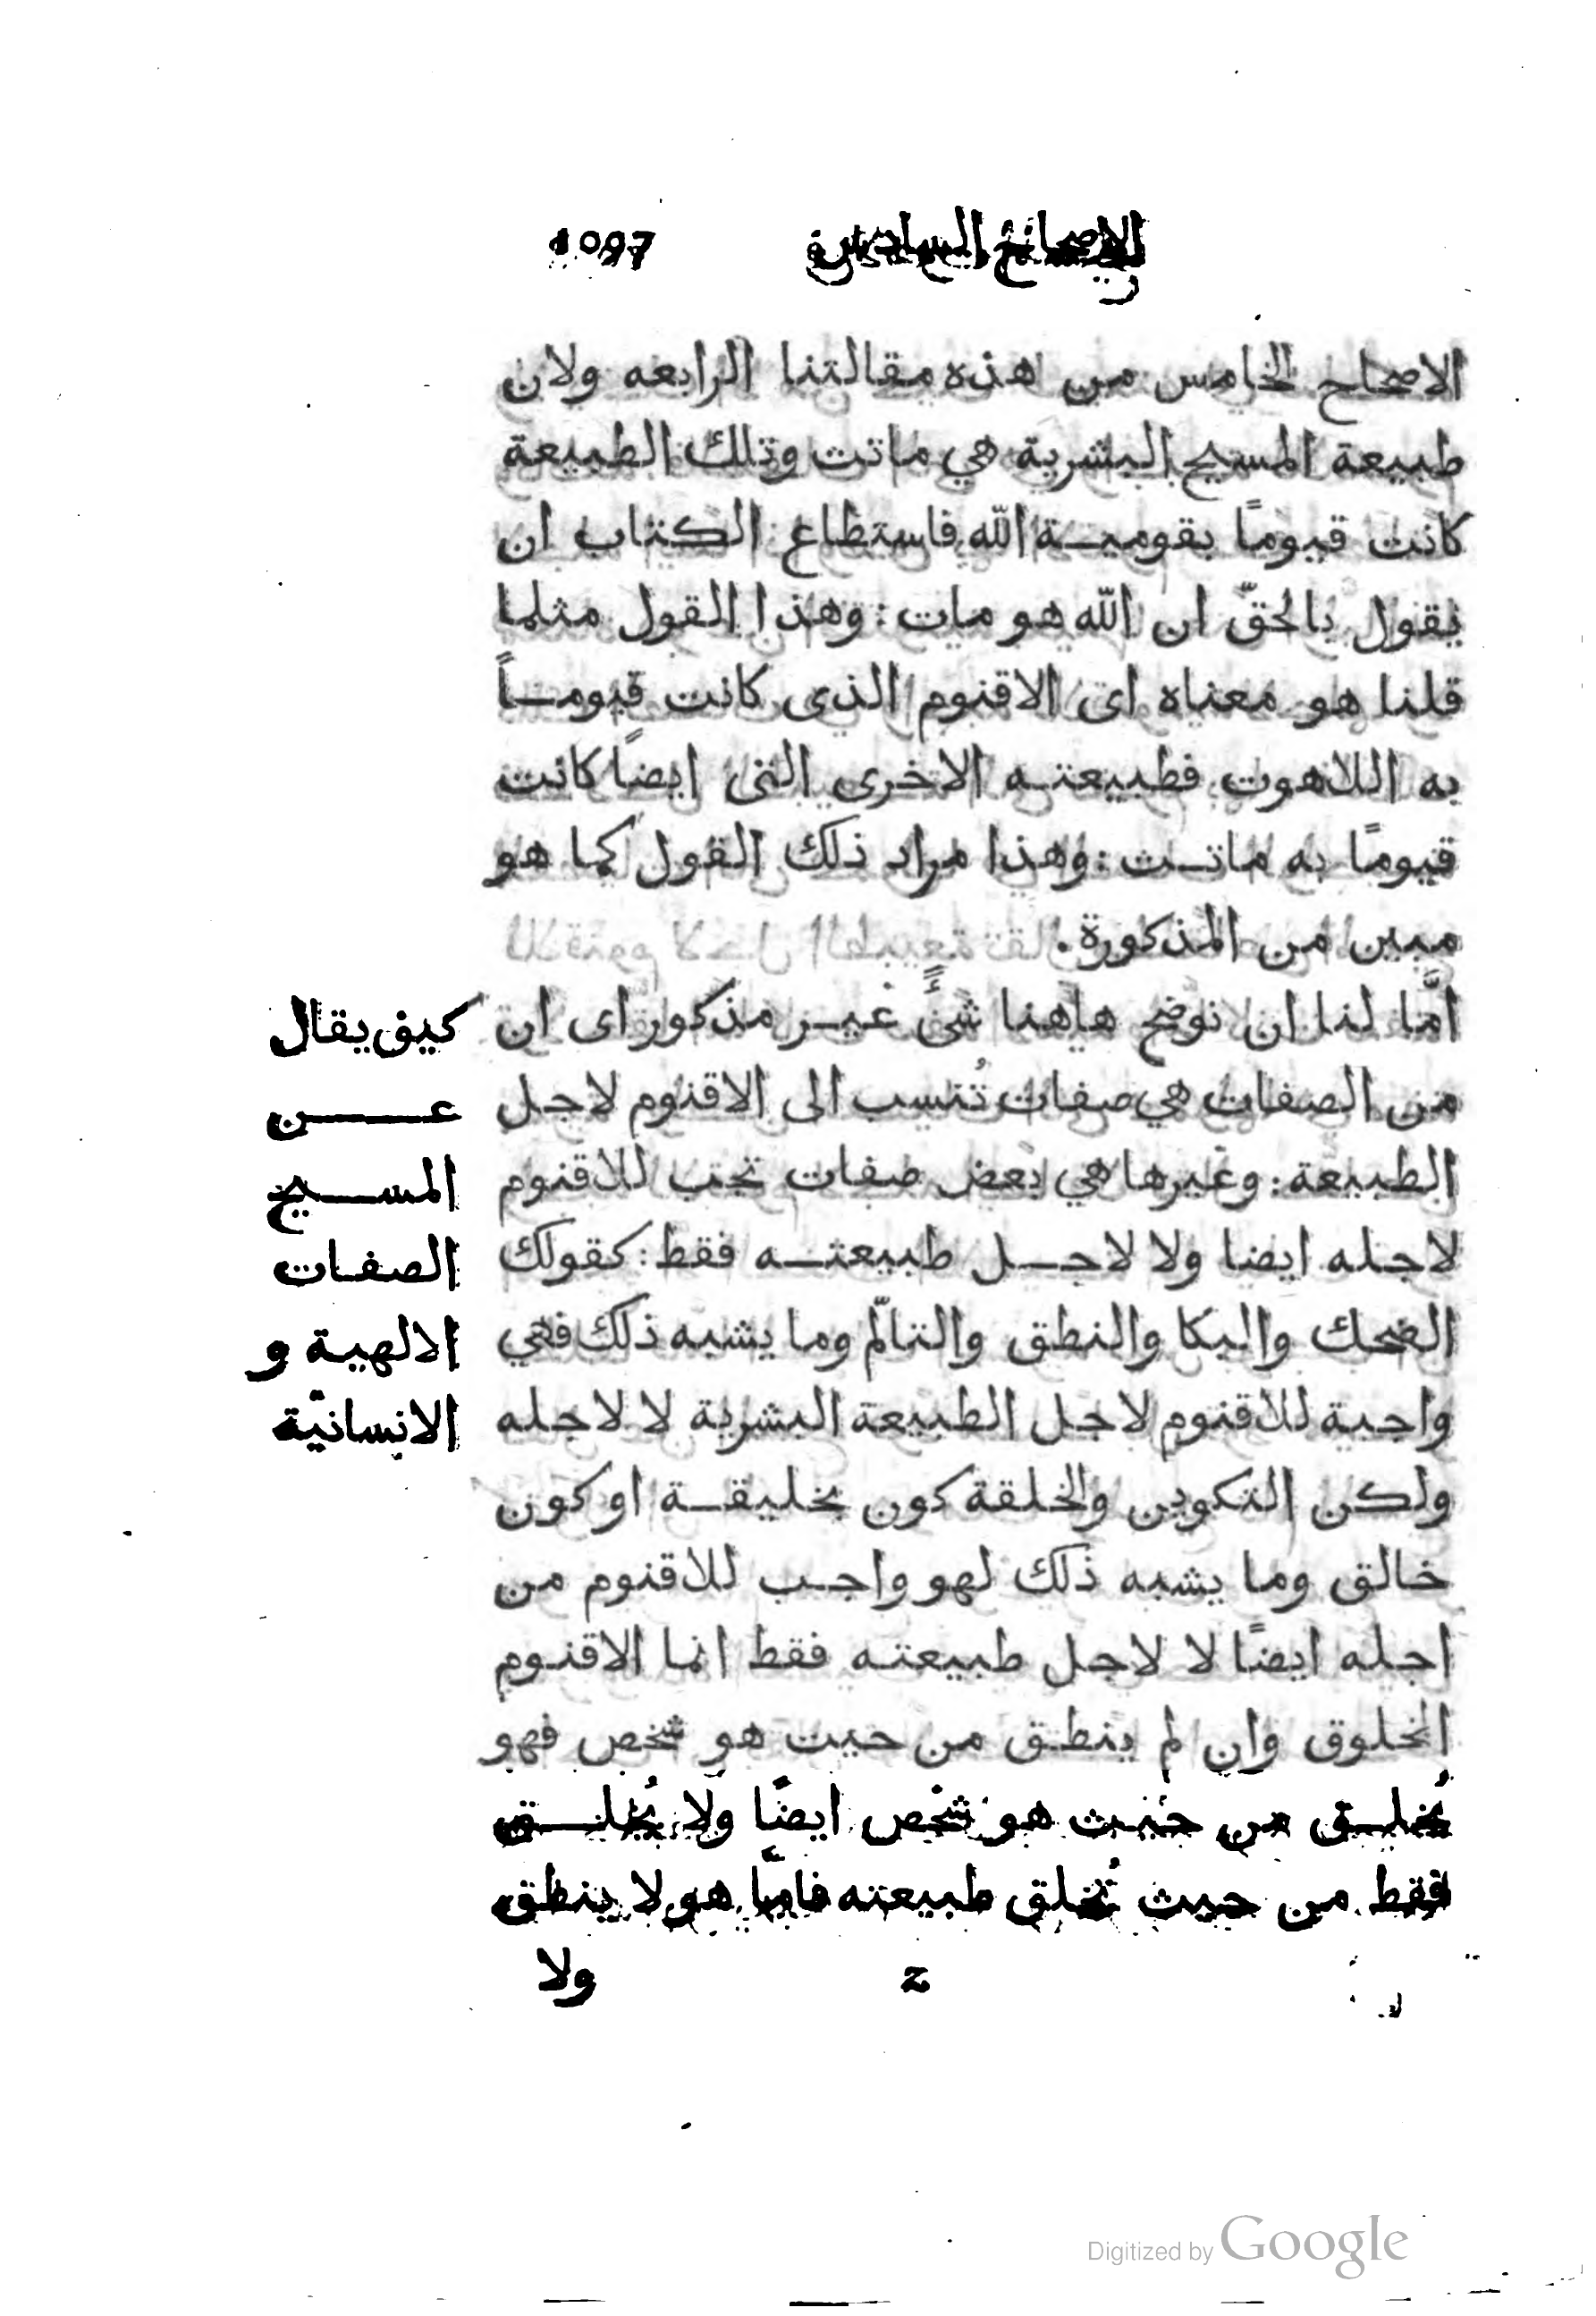 الاصحاح السادس 1097
الاصحاح الخامس من هذه مقالتنا الرابعه ولان
طبيعة المسيح البشرية هي ماتت وتلك الطبيعة
كانت قيومًا بقوميـة الله فاستطاع الكتاب ان
يقول بالحقّ ان الله هو مات: وهذا القول مثلما
قلنا هو معناه اى الاقنوم الذى كانت قيومـاً
به اللاهوت فطبيعتـه الاخرى التى ايضًا كانت
قيومًا به ماتـت: وهذا مراد ذلك القول كما هو
مبين من المذكورة.
امَّا لنا ان نوضح هاهنا شئً غيـر مذكور اى ان
من الصفات هي صفات تُنسب الى الاقنوم لاجل
الطبيعة: وغيرها هي بعض صفات تجب للاقنوم
لاجله ايضا ولا لاجـل طبيعتـه فقط: كقولك
الضحك والبكا والنطق والتالّم وما يشبه ذلك فهي
واجبة للاقنوم لاجل الطبيعة البشرية لا لاجله
ولكن التكوين والخلقة كون بخليقـة او كون
خالق وما يشبه ذلك لهو واجـب للاقنوم من
اجله ايضًا لا لاجل طبيعتـه فقط انما الاقنـوم
المخلوق وان لم ينطـق من حيث هو شخص فهو
يُخلـق من حيـث هو شخص ايضًا ولا يُخلـق
فقط من حيث تُخلق طبيعته فامّا هو لا ينطق
ولا
z
كيف يقال
عـن
المسـيح
الصفـات
الالهيـة و
الانسانيّة
Digitized by Google